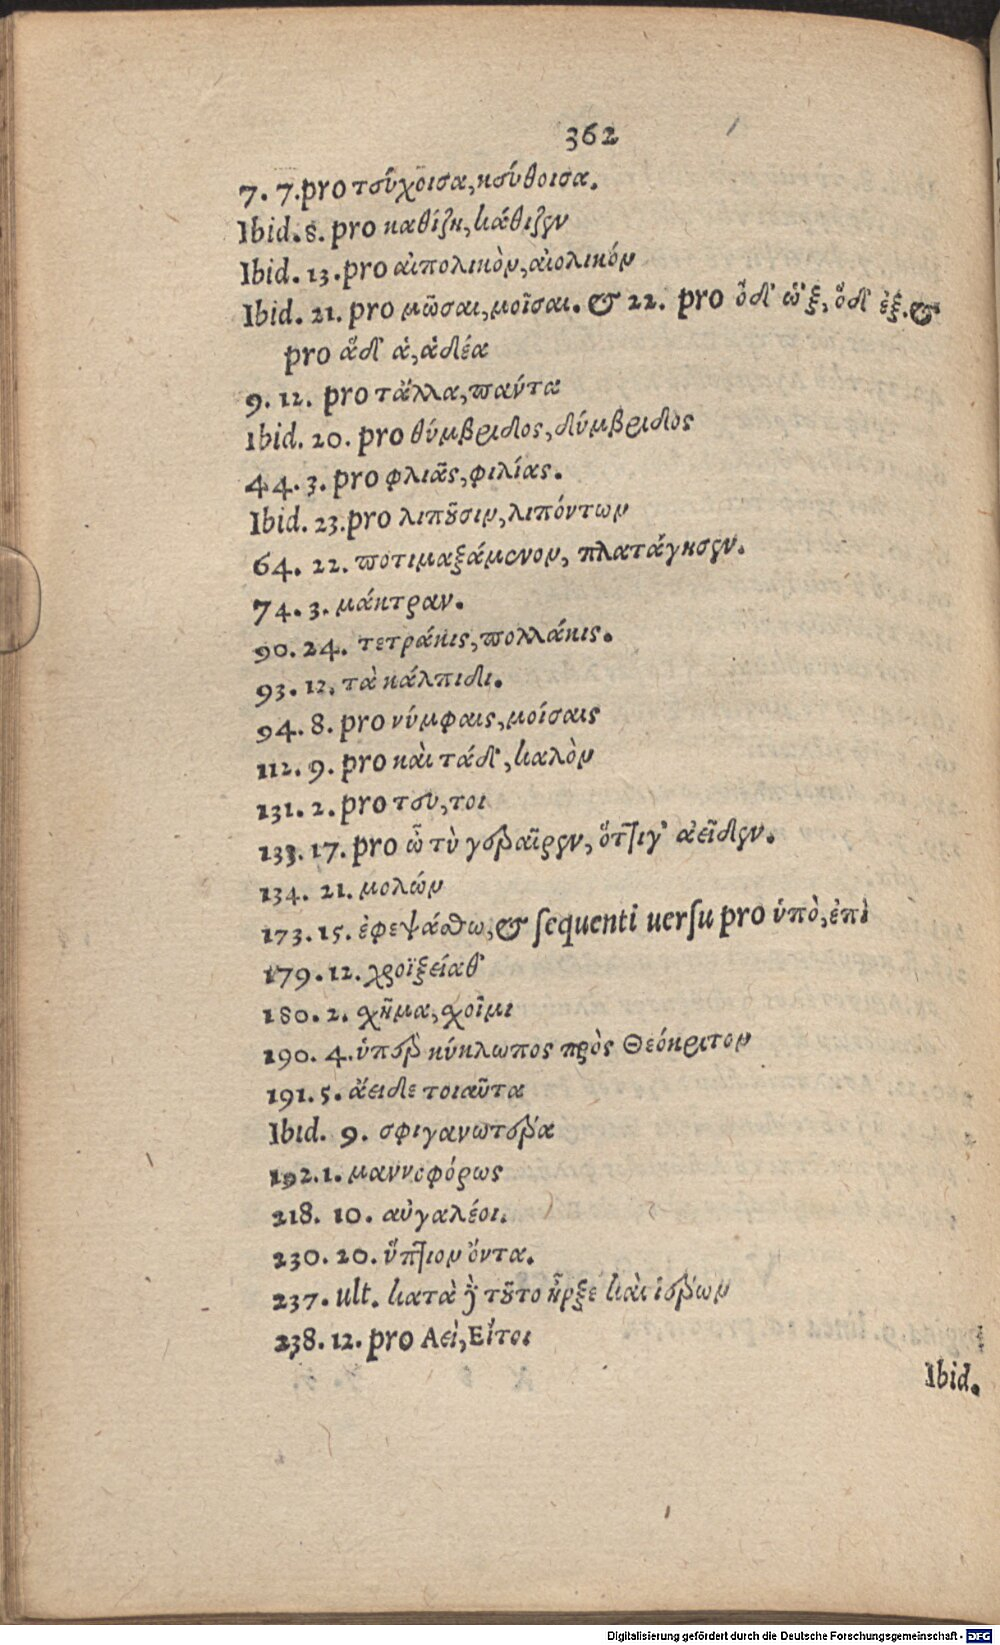 362
7. 7. pro τεύχοισα, κεύθοισα.
Ibid. 8. pro καθίζη, κάθιζεν
Ibid. 13. pro αἰπολικὸν, αἰολικόν
Ibid. 21. pro μῶσαι, μοῖσαι. & 22. pro ὅδ' ὡξ, ὅδ' ἐξ. &
pro ἅδ' ἁ, ἁδέα
9. 12. pro τἄλλα, παύτα
Ibid. 20. pro θύμβριδος, δύμβριδος
44. 3. pro φλιᾶς, φιλίας.
Ibid. 23. pro λιποῦσιν, λιπόντων
64. 22. ποτιμαξάμενον, πλατάγησεν.
74. 3. μάκτραν.
90. 24. τετράκις, πολλάκις.
93. 12. τὰ κάλπιδι.
94. 8. pro νύμφαις, μοίσαις
112. 9. pro καὶ τάδ', καλὸν
131. 2. pro τευ, τοι
133. 17. pro ὦ τὺ γεραῖρεν, ὅττι γ' ἀεῖδεν.
134. 21. μολών
173. 15. ἐφεψάσθω, & sequenti uersu pro ὑπὸ, ἐπὶ
179. 12. χροϊξεῖαθ'
180. 2. χῆμα, χοῖμι
190. 4. ὑπὲρ κύκλωπος πρὸς Θεόκριτον
191. 5. ἄειδε τοιαῦτα
Ibid. 9. σφιγανωτέρα
192. 1. μαννοφόρως
218. 10. αὐγαλέοι.
230. 20. ὕπτιον ὄντα.
237. ult. κατὰ γὰρ τοῦτο ἦρξε καὶ ἱέρων
238. 12. pro Αεὶ, Εἴτοι
Ibid.
Digitalisierung gefördert durch die Deutsche Forschungsgemeinschaft - DFG